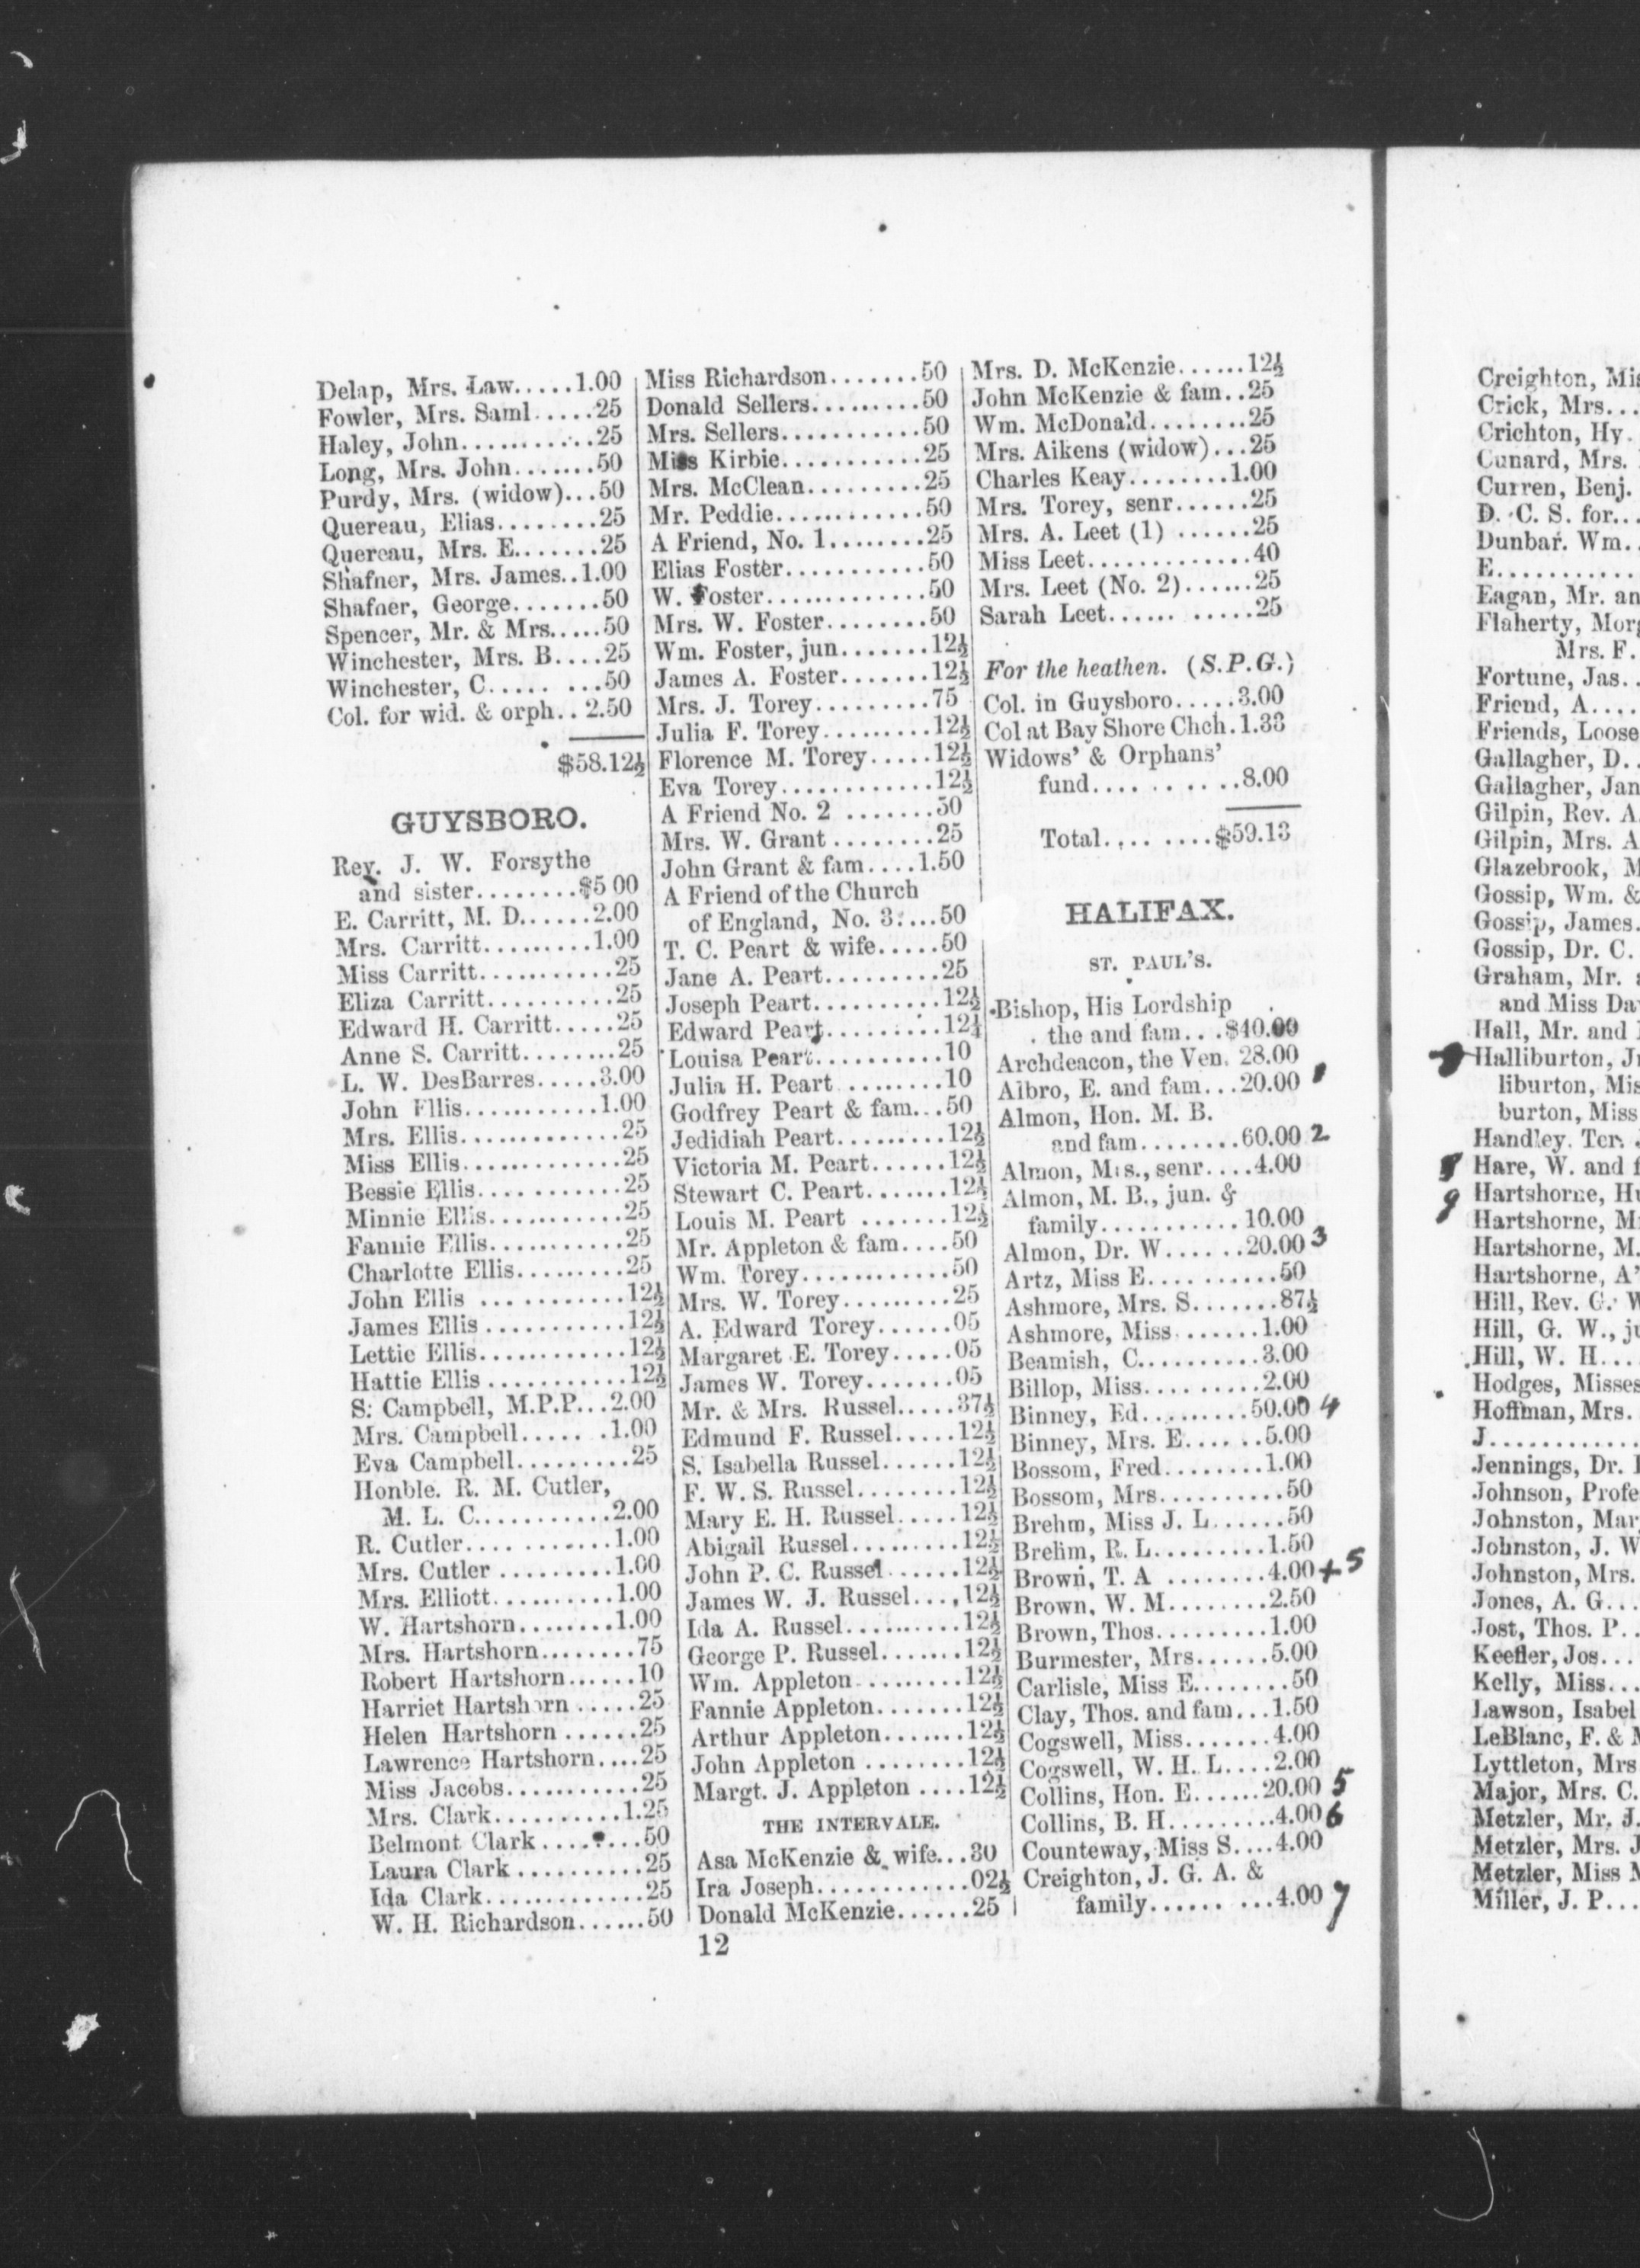 Delap, Mrs. Law.....1.00
Fowler, Mrs. Saml.....25
Haley, John...........25
Long, Mrs. John.......50
Purdy, Mrs. (widow)...50
Quereau, Elias.........25
Quereau, Mrs. E.......25
Shafner, Mrs. James..1.00
Shafner, George.......50
Spencer, Mr. & Mrs.....50
Winchester, Mrs. B....25
Winchester, C..... ...50
Col. for wid. & orph.. 2.50
$58.12½
GUYSBORO.
Rev. J. W. Forsythe
and sister.........$5 00
E. Carritt, M. D......2.00
Mrs. Carritt.........1.00
Miss Carritt...........25
Eliza Carritt..........25
Edward H. Carritt.....25
Anne S. Carritt........25
L. W. DesBarres.....3.00
John Ellis...........1.00
Mrs. Ellis.............25
Miss Ellis.............25
Bessie Ellis...........25
Minnie Ellis...........25
Fannie Ellis...........25
Charlotte Ellis.........25
John Ellis ............12½
James Ellis ...........12½
Lettie Ellis............12½
Hattie Ellis ...........12½
S. Campbell, M.P.P...2.00
Mrs. Campbell..... .1.00
Eva Campbell.........25
Honble. R. M. Cutler,
M. L. C...........2.00
R. Cutler............1.00
Mrs. Cutler .........1.00
Mrs. Elliott..........1.00
W. Hartshorn........1.00
Mrs. Hartshorn........75
Robert Hartshorn......10
Harriet Hartshorn .....25
Helen Hartshorn ......25
Lawrence Hartshorn....25
Miss Jacobs...........25
Mrs. Clark..........1.25
Belmont Clark ........50
Laura Clark ..........25
Ida Clark.............25
W. H. Richardson......50
Miss Richardson.......50
Donald Sellers.........50
Mrs. Sellers...........50
Miss Kirbie............25
Mrs. McClean.........25
Mr. Peddie............50
A Friend, No. 1........25
Elias Foster...........50
W. Foster.............50
Mrs. W. Foster........50
Wm. Foster, jun.......12½
James A. Foster.......12½
Mrs. J. Torey.........75
Julia F. Torey.........12½
Florence M. Torey.....12½
Eva Torey............12½
A Friend No. 2 .......50
Mrs. W. Grant ........25
John Grant & fam....1.50
A Friend of the Church
of England, No. 3....50
T. C. Peart & wife.....50
Jane A. Peart.........25
Joseph Peart..........12½
Edward Peart.........12½
Louisa Peart..........10
Julia H. Peart ........10
Godfrey Peart & fam...50
Jedidiah Peart.........12½
Victoria M. Peart......12½
Stewart C. Peart.......12½
Louis M. Peart .......12½
Mr. Appleton & fam....50
Wm. Torey............50
Mrs. W. Torey.........25
A. Edward Torey......05
Margaret E. Torey.....05
James W. Torey.......05
Mr. & Mrs. Russel.....37½
Edmund F. Russel.....12½
S. Isabella Russel......12½
F. W. S. Russel........12½
Mary E. H. Russel.....12½
Abigail Russel.........12½
John P. C. Russel......12½
James W. J. Russel....12½
Ida A. Russel..........12½
George P. Russel.......12½
Wm. Appleton.........12½
Fannie Appleton.......12½
Arthur Appleton.......12½
John Appleton ........12½
Margt. J. Appleton ....12½
THE INTERVALE.
Asa McKenzie & wife...30
Ira Joseph............02½
Donald McKenzie......25
Mrs. D. McKenzie......12½
John McKenzie & fam..25
Wm. McDonald........25
Mrs. Aikens (widow)...25
Charles Keay........1.00
Mrs. Torey, senr......25
Mrs. A. Leet (1) ......25
Miss Leet.............40
Mrs. Leet (No. 2)......25
Sarah Leet...... .....25
For the heathen. (S.P.G.)
Col. in Guysboro.....3.00
Col at Bay Shore Chch.1.33
Widows' & Orphans'
fund..... . . . ..8.00
Total.... .....$59.13
HALIFAX.
ST. PAUL'S.
Bishop, His Lordship
the and fam...$40.00
Archdeacon, the Ven. 28.00
Albro, E. and fam...20.00 1
Almon, Hon. M. B.
and fam........60.00 2
Almon, Mrs., senr....4.00
Almon, M. B., jun. &
family...........10.00
Almon, Dr. W......20.00 3
Artz, Miss E..........50
Ashmore, Mrs. S.......87½
Ashmore, Miss.......1.00
Beamish, C..........3.00
Billop, Miss.........2.00
Binney, Ed.........50.00 4
Binney, Mrs. E......5.00
Bossom, Fred........1.00
Bossom, Mrs..........50
Brehm, Miss J. L......50
Brehm, R. L.........1.50
Brown, T. A ........4.00 + 5
Brown, W. M........2.50
Brown, Thos.........1.00
Burmester, Mrs......5.00
Carlisle, Miss E........50
Clay, Thos. and fam...1.50
Cogswell, Miss.......4.00
Cogswell, W. H. L....2.00
Collins, Hon. E......20.00 5
Collins, B. H.........4.00 6
Counteway, Miss S....4.00
Creighton, J. G. A. &
family...... ...4.00 7
12
Creighton, Mis
Crick, Mrs...
Crichton, Hy.
Cunard, Mrs.
Curren, Benj.
D. C. S. for...
Dunbar. Wm..
E............
Eagan, Mr. an
Flaherty, Morg
Mrs. F.
Fortune, Jas..
Friend, A....
Friends, Loose
Gallagher, D..
Gallagher, Jan
Gilpin, Rev. A.
Gilpin, Mrs. A
Glazebrook, M
Gossip, Wm. &
Gossip, James.
Gossip, Dr. C.
Graham, Mr. a
and Miss Da
Hall, Mr. and
Halliburton, J
liburton, Mis
burton, Miss
Handley. Ter.
8 Hare, W. and f
9 Hartshorne, Hu
Hartshorne, M
Hartshorne, M.
Hartshorne, A
Hill, Rev. G. W
Hill, G. W., ju
Hill, W. H....
Hodges, Misses
Hoffman, Mrs.
J............
Jennings, Dr.
Johnson, Profe
Johnston, Mar
Johnston, J. W
Johnston, Mrs.
Jones, A. G...
Jost, Thos. P..
Keefler, Jos...
Kelly, Miss...
Lawson, Isabel
LeBlanc, F. & M
Lyttleton, Mrs
Major, Mrs. C.
Metzler, Mr. J.
Metzler, Mrs. J
Metzler, Miss M
Miller, J. P...